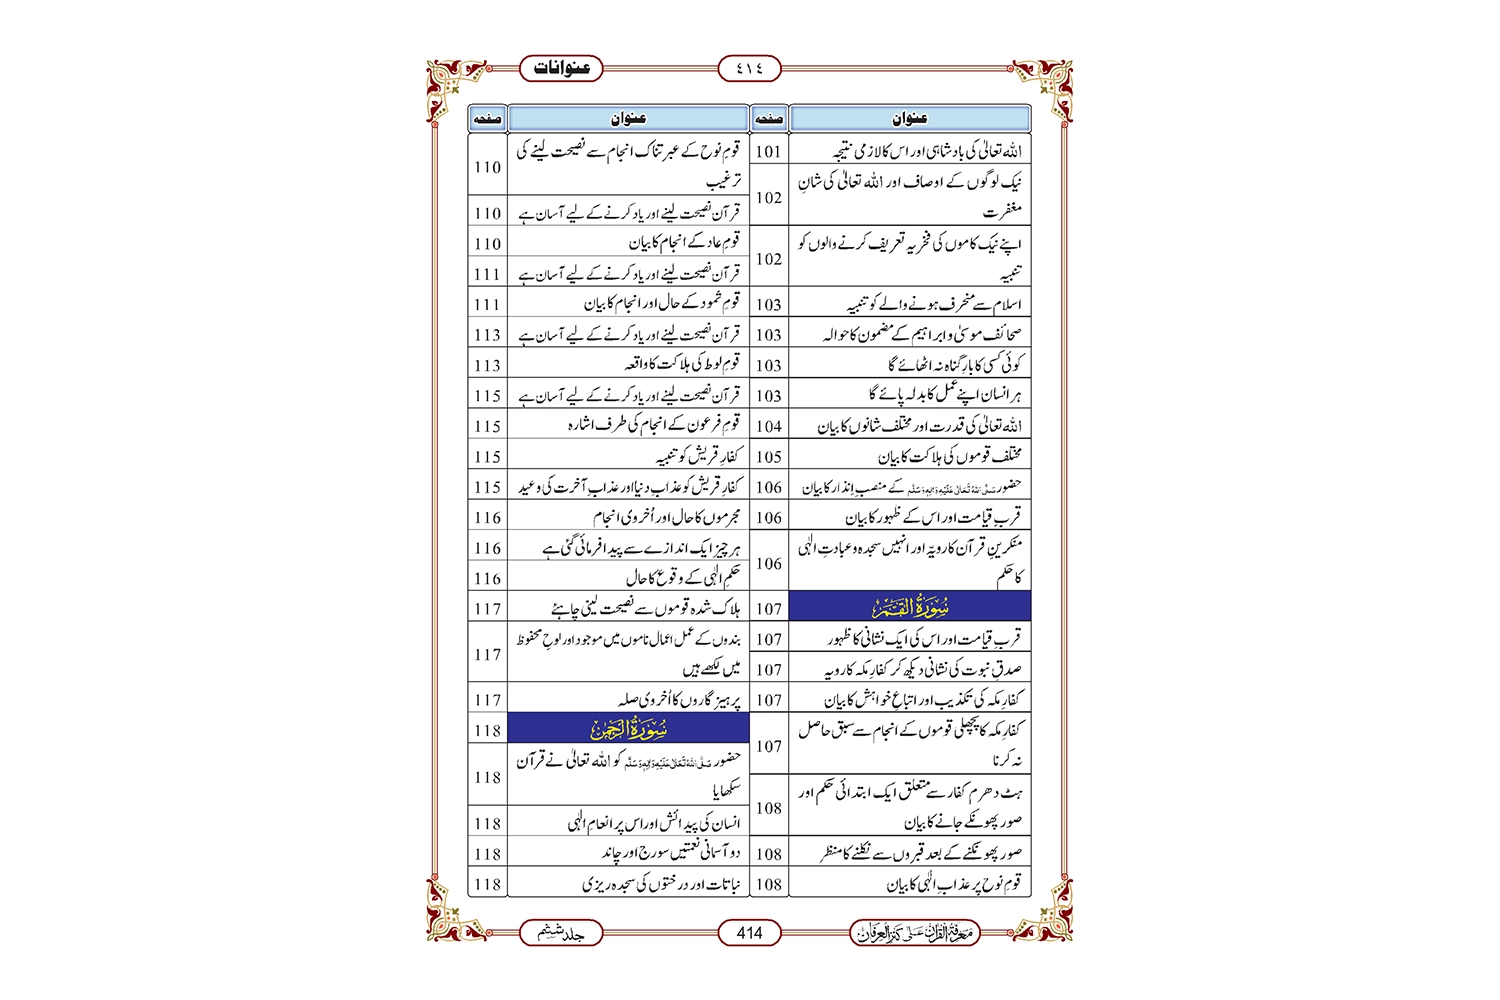 عنوانات
٤١٤
عنوان صفحہ
اللہ تعالیٰ کی بادشاہی اور اس کا لازمی نتیجہ 101
نیک لوگوں کے اوصاف اور اللہ تعالیٰ کی شانِ
مغفرت 102
اپنے نیک کاموں کی فخریہ تعریف کرنے والوں کو
تنبیہ 102
اسلام سے منحرف ہونے والے کو تنبیہ 103
صحائف موسیٰ و ابراہیم کے مضمون کا حوالہ 103
کوئی کسی کا بارِ گناہ نہ اٹھائے گا 103
ہر انسان اپنے عمل کا بدلہ پائے گا 103
اللہ تعالیٰ کی قدرت اور مختلف شانوں کا بیان 104
مختلف قوموں کی ہلاکت کا بیان 105
حضور صَلَّی اللہُ تَعَالٰی عَلَیْہِ وَاٰلِہٖ وَسَلَّم کے منصبِ اِنذار کا بیان 106
قربِ قیامت اور اس کے ظہور کا بیان 106
منکرینِ قرآن کا رویہ اور انہیں سجدہ و عبادتِ الٰہی
کا حکم 106
سُوْرَۃُ الْقَمَر 107
قربِ قیامت اور اس کی ایک نشانی کا ظہور 107
صدقِ نبوت کی نشانی دیکھ کر کفارِ مکہ کا رویہ 107
کفارِ مکہ کی تکذیب اور اتباعِ خواہش کا بیان 107
کفارِ مکہ کا پچھلی قوموں کے انجام سے سبق حاصل
نہ کرنا 107
ہٹ دھرم کفار سے متعلق ایک ابتدائی حکم اور
صور پھونکے جانے کا بیان 108
صور پھونکنے کے بعد قبروں سے نکلنے کا منظر 108
قومِ نوح پر عذابِ الٰہی کا بیان 108
عنوان صفحہ
قومِ نوح کے عبرتناک انجام سے نصیحت لینے کی
ترغیب 110
قرآن نصیحت لینے اور یاد کرنے کے لیے آسان ہے 110
قومِ عاد کے انجام کا بیان 110
قرآن نصیحت لینے اور یاد کرنے کے لیے آسان ہے 111
قومِ ثمود کے حال اور انجام کا بیان 111
قرآن نصیحت لینے اور یاد کرنے کے لیے آسان ہے 113
قومِ لوط کی ہلاکت کا واقعہ 113
قرآن نصیحت لینے اور یاد کرنے کے لیے آسان ہے 115
قومِ فرعون کے انجام کی طرف اشارہ 115
کفارِ قریش کو تنبیہ 115
کفارِ قریش کو عذابِ دنیا اور عذابِ آخرت کی وعید 115
مجرموں کا حال اور اُخروی انجام 116
ہر چیز ایک اندازے سے پیدا فرمائی گئی ہے 116
حکمِ الٰہی کے وقوع کا حال 116
ہلاک شدہ قوموں سے نصیحت لینی چاہئے 117
بندوں کے عمل اعمال ناموں میں موجود اور لوحِ محفوظ
میں لکھے ہیں 117
پرہیزگاروں کا اُخروی صلہ 117
سُوْرَۃُ الرَّحْمٰن 118
حضور صَلَّی اللہُ تَعَالٰی عَلَیْہِ وَاٰلِہٖ وَسَلَّم کو اللہ تعالیٰ نے قرآن
سکھایا 118
انسان کی پیدائش اور اس پر انعامِ الٰہی 118
دو آسمانی نعمتیں سورج اور چاند 118
نباتات اور درختوں کی سجدہ ریزی 118
معرفۃ القرآن علیٰ کنز العرفان
414
جلد ششم